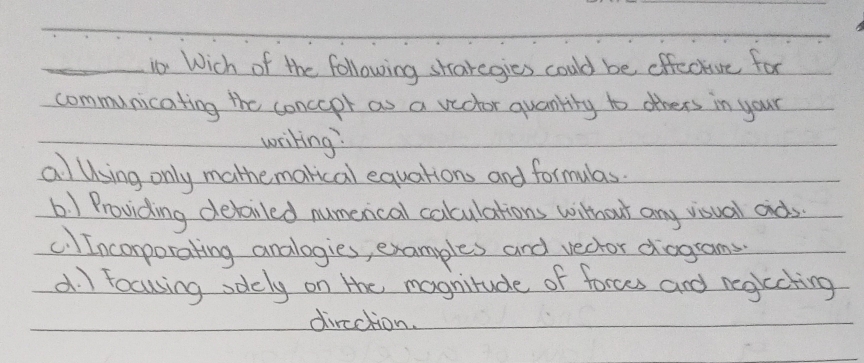 10. Wich of the following strategies could be effective for
communicating the concept as a vector quantity to others in your
writing?
a.) Using only mathematical equations and formulas.
b.) Providing detailed numerical calculations without any visual aids.
c.) Incorporating analogies, examples and vector diagrams.
d.) Focusing solely on the magnitude of forces and neglecting
direction.